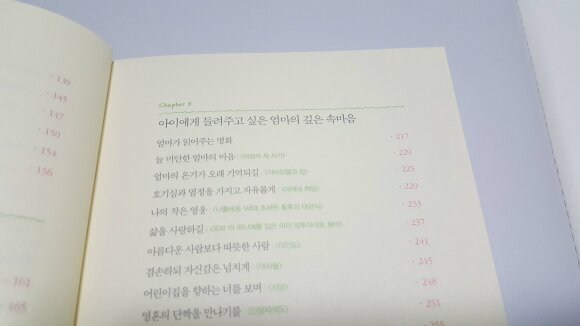 139
145
147
150
154
156
161
165
Chapter 5
아이에게 들려주고 싶은 엄마의 깊은 속마음
엄마가 읽어주는 명화 · 217
늘 미안한 엄마의 마음 〈여성의 세 시기〉 · 220
엄마의 온기가 오래 기억되길 · 225
호기심과 열정을 가지고 자유롭게 〈아테네 학당〉 · 229
나의 작은 영웅 〈나폴레옹 1세와 조세핀 황후의 대관식〉 · 233
삶을 사랑하길 · 237
아름다운 사람보다 따뜻한 사람 〈미인도〉 · 241
겸손하되 자신감은 넘치게 〈대사들〉 · 245
어린이집을 향하는 너를 보며 〈서당〉 · 248
영혼의 단짝을 만나기를 〈인왕제색도〉 · 251